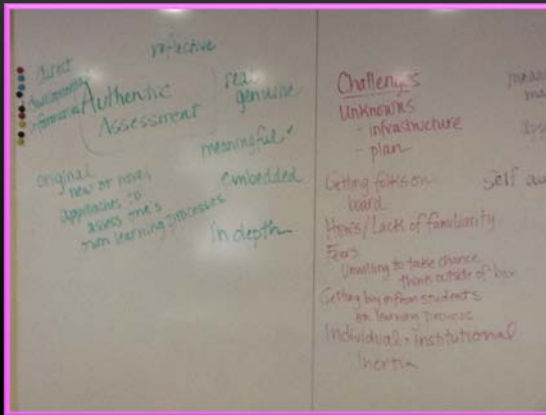 reflective
direct
developmental
informative
Authentic
Assessment
real
genuine
meaningful
original
new or novel
approaches to
assess one's
own learning processes
embedded
In depth
Challenges
Unknowns
- infrastructure
- plan
Getting folks on
board
How's/Lack of familiarity
Fears
Unwilling to take chance
think outside of box
Getting buy in from students
on learning process
Individual + Institutional
Inertia
Self